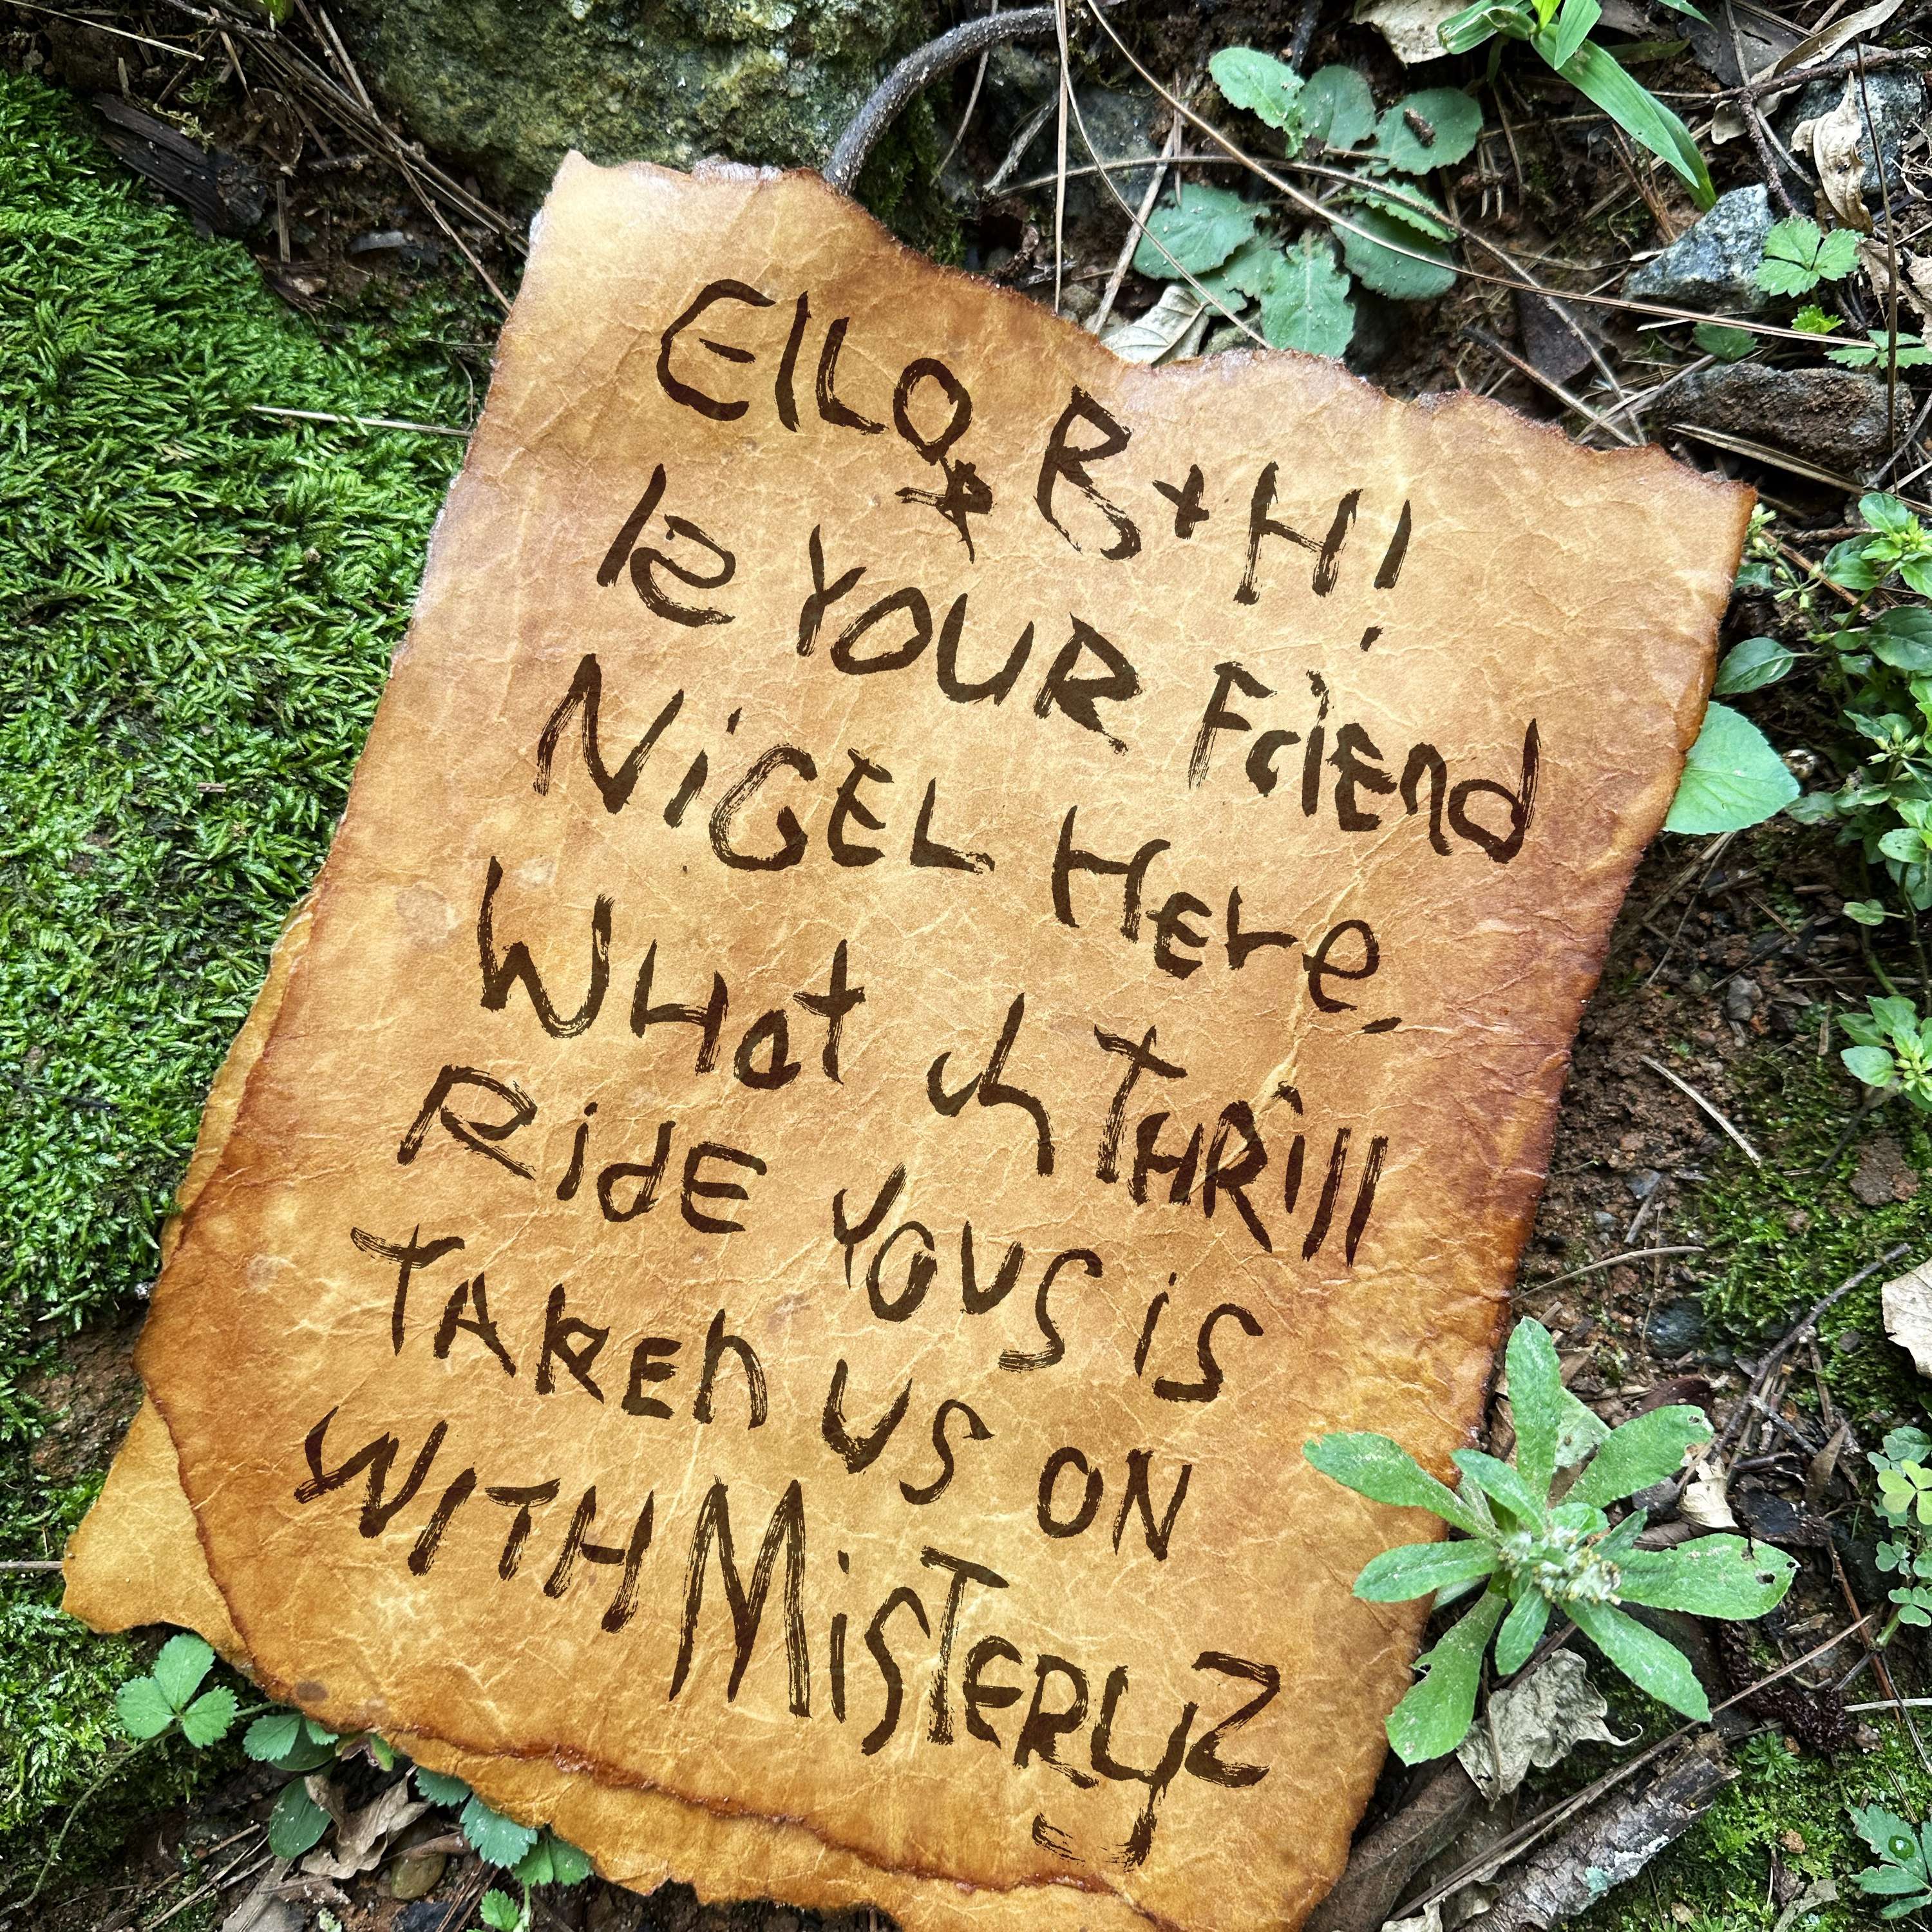 EllO B+H!
is YOUR FriEnd
NiGEL HEre,
WHat a THRill
RidE YOUS is
TAKEn US ON
WITH MiSTERyZ